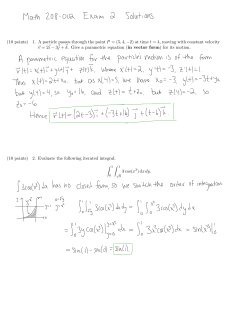 Math 208-012 Exam 2 Solutions
(10 points) 1. A particle passes through the point P = (5, 4, -2) at time t = 4, moving with constant velocity
v⃗ = 2i⃗ - 3j⃗ + k⃗. Give a parametric equation (in vector form) for its motion.
A parametric equation for the particle's motion is of the form
r⃗(t) = x(t)i⃗ + y(t)j⃗ + z(t)k⃗, where x'(t)=2, y'(t)=-3, z'(t)=1
Thus x(t)=2t+x₀, but as x(4)=5, we have x₀=-3, y(t)=-3t+y₀
but y(4)=4, so y₀=16, and z(t)=t+z₀, but z(4)=-2, so
z₀=-6
Hence r⃗(t)=(2t-3)i⃗ + (-3t+16)j⃗ + (t-6)k⃗
(10 points) 2. Evaluate the following iterated integral:
3 cos(x³) dx dy.
∫ 3 cos(x³) dx has no closed form, so we switch the order of integration
3 cos(x³) dx dy = 3 cos(x³) dy dx
= 3y cos(x³) dx = 3x² cos(x³) dx = sin(x³)
= sin(1) - sin(0) = sin(1)